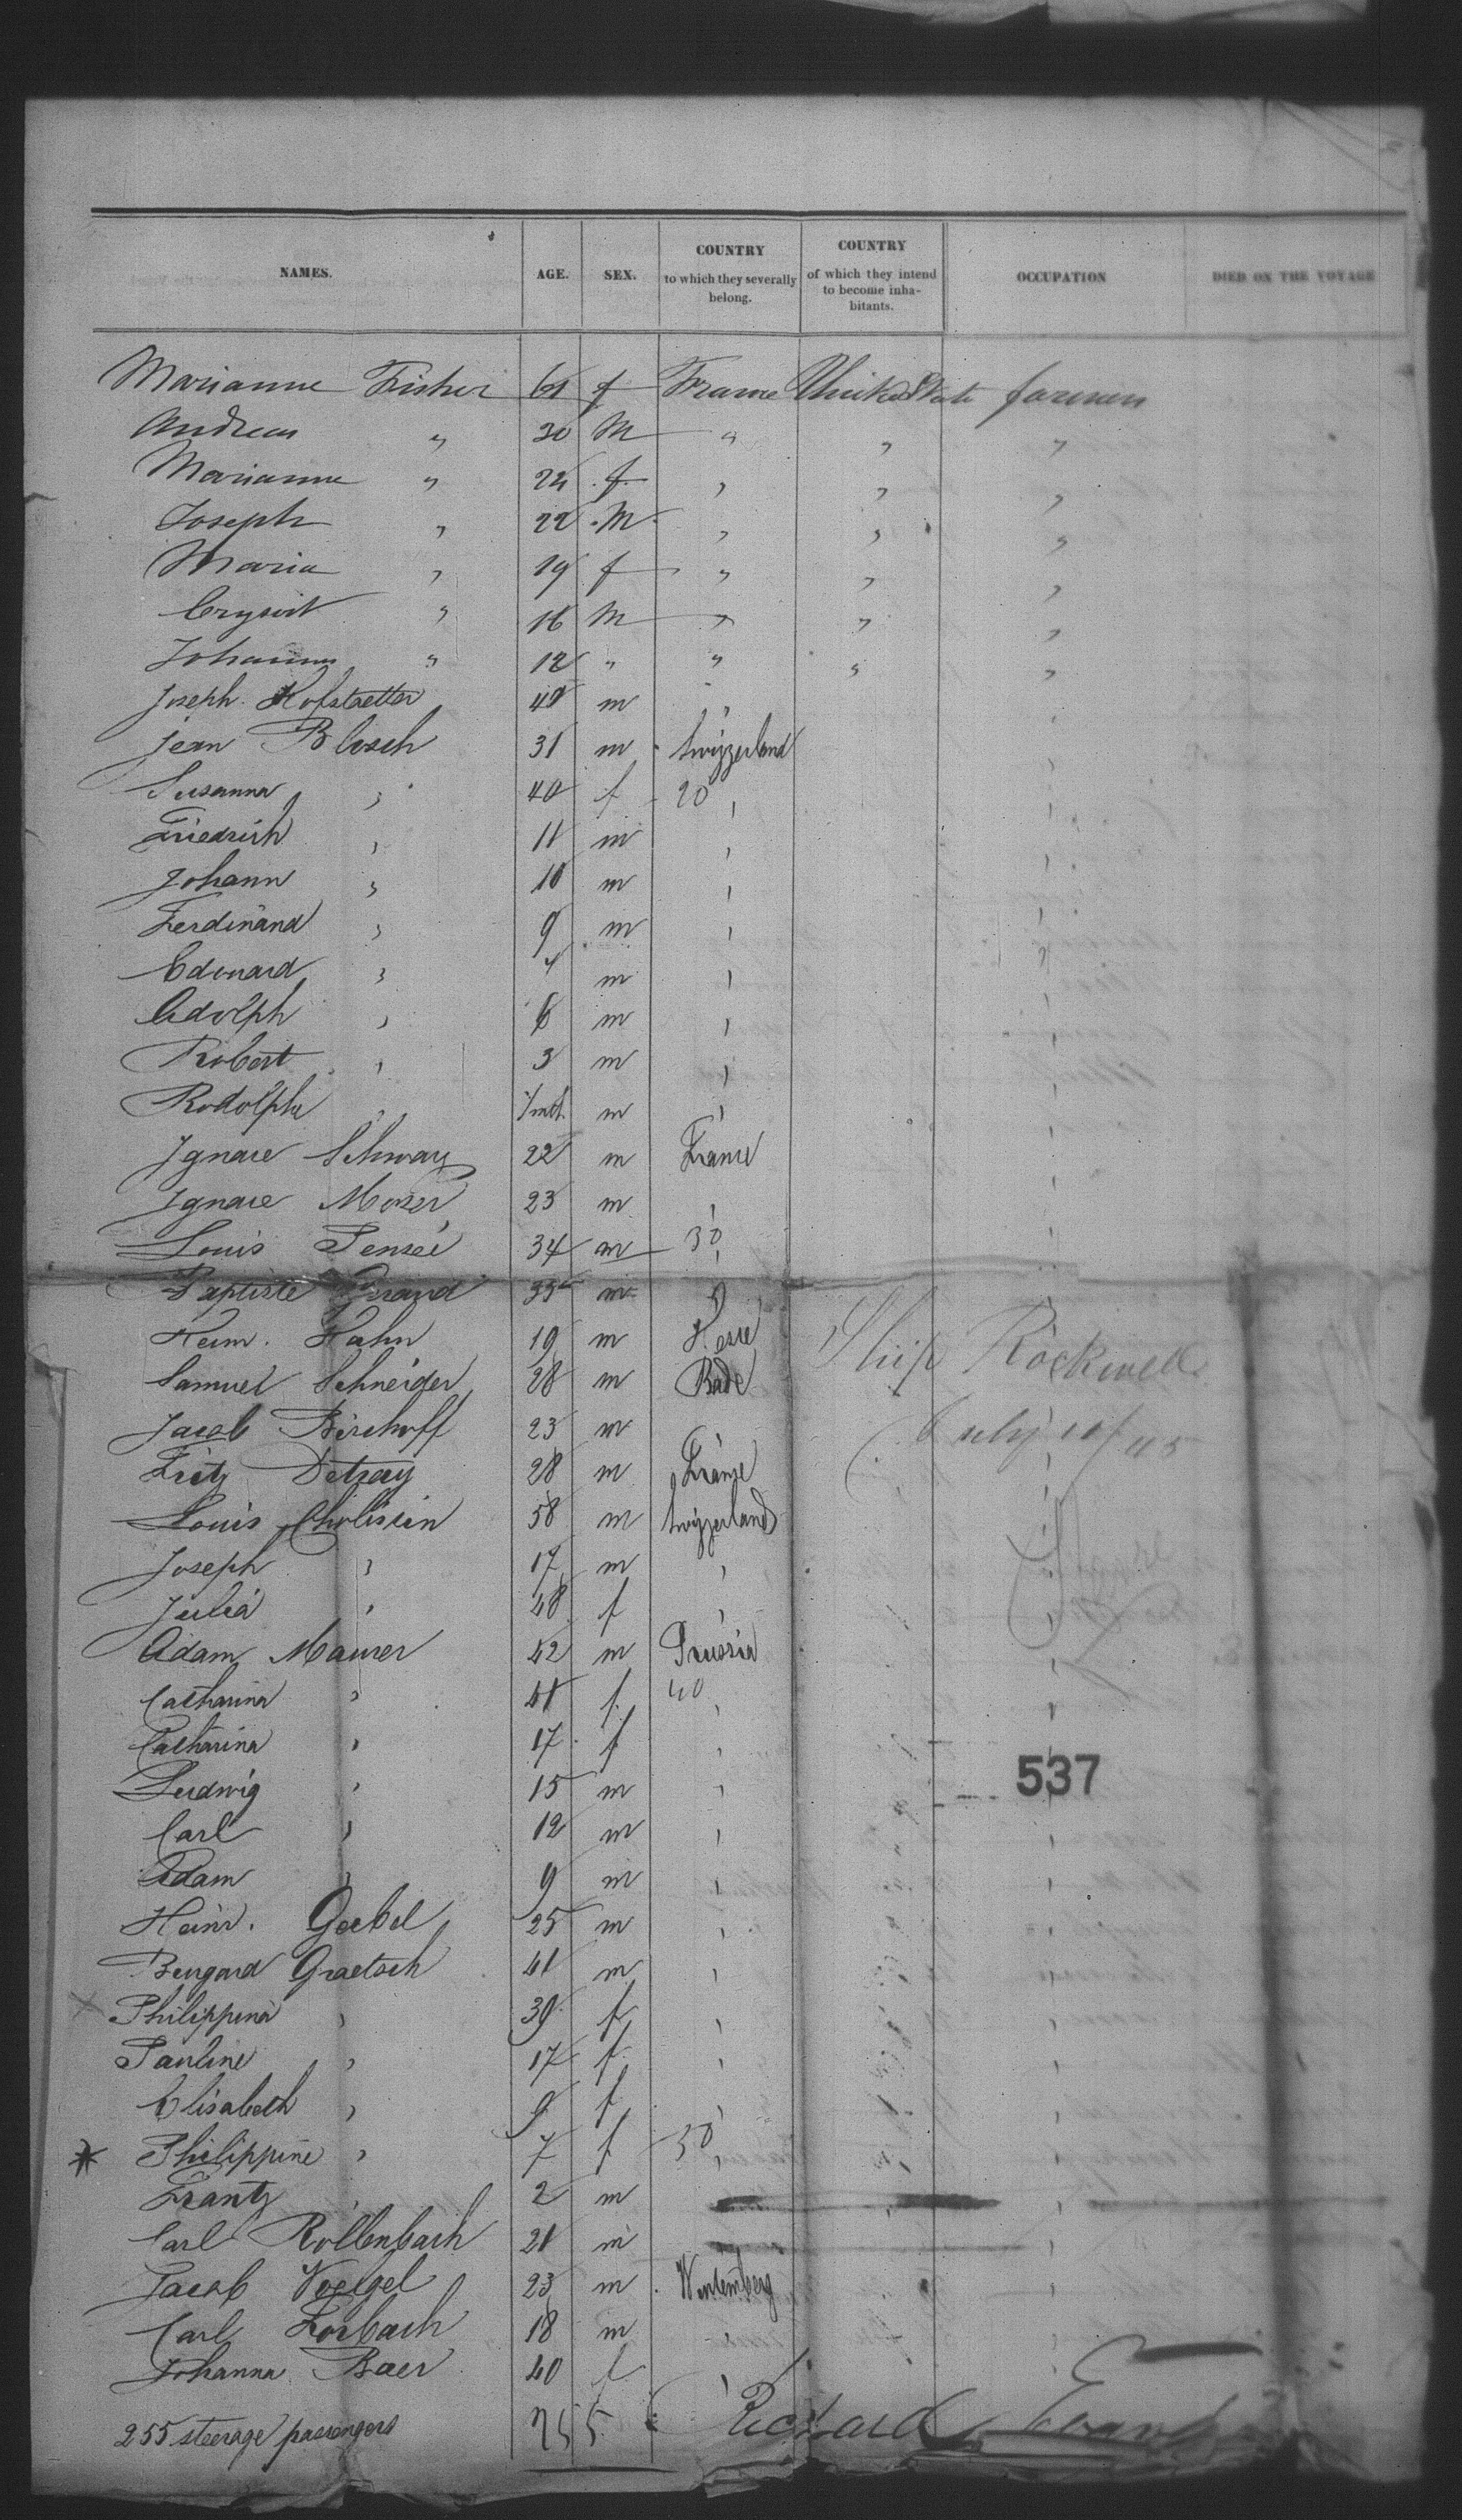 NAMES. AGE. SEX. COUNTRY to which they severally belong. COUNTRY of which they intend to become inha-bitants. OCCUPATION DIED ON THE VOYAGE
Marianne Fisher 61 f France United State farmers
Andreas " 30 M " " "
Marianne " 24 f " " "
Joseph " 22 M " " "
Maria " 19 f " " "
" 16 M " " "
Johannes " 12 " " " "
Joseph Hofstaetter 48 m "
Jean Blosch 31 m Swizzerland
Susanna " 40 f 20 "
Friedrich " 11 m "
Johann " 10 m "
Ferdinand " 9 m "
Edouard " 7 m "
Adolph " 6 m "
Robert " 3 m "
Rodolphe " 7 mth. m "
Ignace Schwarz 22 m France
Ignace Moser 23 m "
Louis Pensée 34 m 30 "
Baptiste Grand 35 m "
Heinr. Hahn 19 m Hesse
Samuel Schneider 28 m Bade
Ship Rockwell
Jacob Bischoff 23 m "
July 10/45
Fritz Detray 28 m France
Louis 58 m Swizzerland
Joseph " 17 m "
Julia " 48 f "
Adam Maurer 42 m Prussia
Catharina " 41 f 40 "
Catharina " 17 f "
Ludwig " 15 m "
537
Carl " 12 m "
Adam " 9 m "
Heinr. Goebel 25 m "
Bengard Graetsch 41 m "
Philippena " 39 f "
Pauline " 17 f "
Elisabeth " 9 f "
* Philippine " 7 f 50 "
Frantz " 2 m
Carl Rollenbach 21 m
Jacob Voelgel 23 m Wurtemberg
Carl Forbach 18 m "
Johanna Baer 40 f "
255 steerage passengers 255 Richard Evans